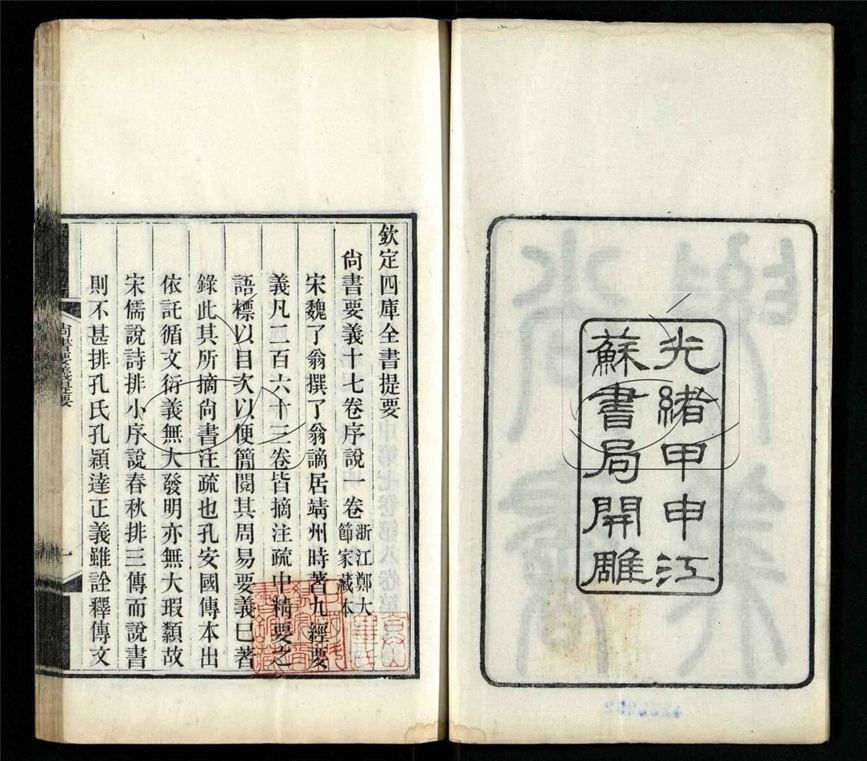 光緒甲申江
蘇書局開雕
欽定四庫全書提要
尙書要義十七卷序說一卷浙江鄭大節家藏本
宋魏了翁撰了翁謫居靖州時著九經要
義凡二百六十三卷皆摘注疏中精要之
語標以目次以便簡閱其周易要義已著
錄此其所摘尙書注疏也孔安國傳本出
依託循文衍義無大發明亦無大瑕纇故
宋儒說詩排小序說春秋排三傳而說書
則不甚排孔氏孔穎達正義雖詮釋傳文
尚書要義提要
一